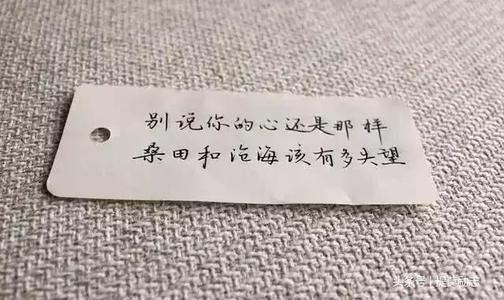 别说你的心还是那样
桑田和沧海该有多失望
头条号